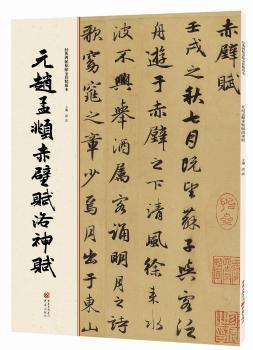 赤壁賦
壬戌之秋七月既望蘇子與客泛
舟遊于赤壁之下清風徐来水
波不興舉酒属客誦明月之詩
歌窈窕之章少焉月出于東山
元趙孟頫赤壁賦洛神賦